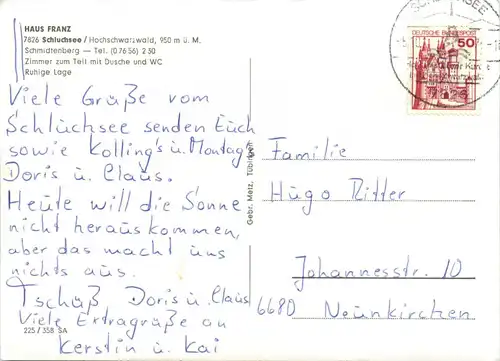 HAUS FRANZ
7826 Schluchsee / Hochschwarzwald, 950 m ü. M.
Schmidtenberg — Tel. (0 76 56) 2 30
Zimmer zum Teil mit Dusche und WC
Ruhige Lage
Viele Grüße vom
Schluchsee senden Euch
sowie Kolling's u. Montag
Doris u. Claus.
Heute will die Sonne
nicht herauskommen,
aber das macht uns
nichts aus.
Tschüß Doris u. Claus
Viele Extragrüße an
Kerstin u. Kai
225 / 358 SA
Gebr. Metz, Tübingen
DEUTSCHE BUNDESPOST
50
Familie
Hugo Ritter
Johannesstr. 10
6680 Neunkirchen